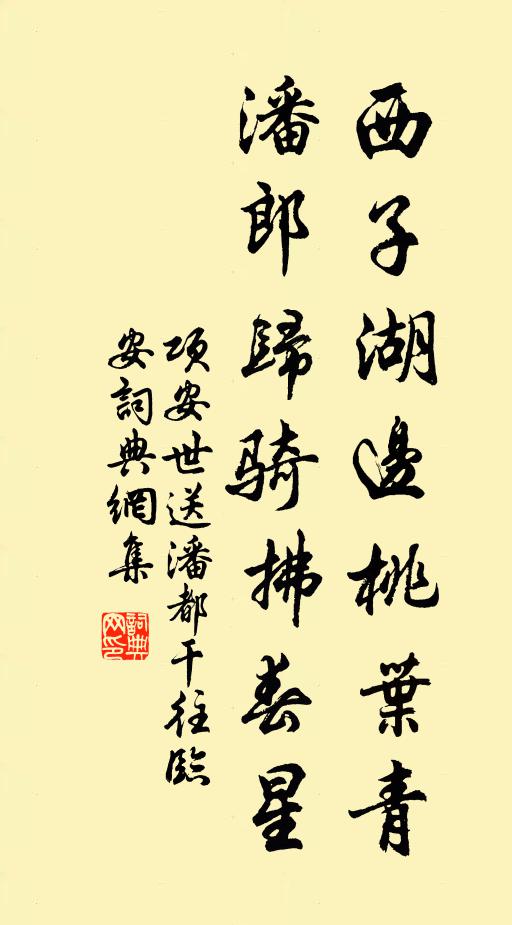 西子湖邊桃葉青
潘郎歸騎拂春星
項安世送潘都干往臨
安詞典網集
詞典网印